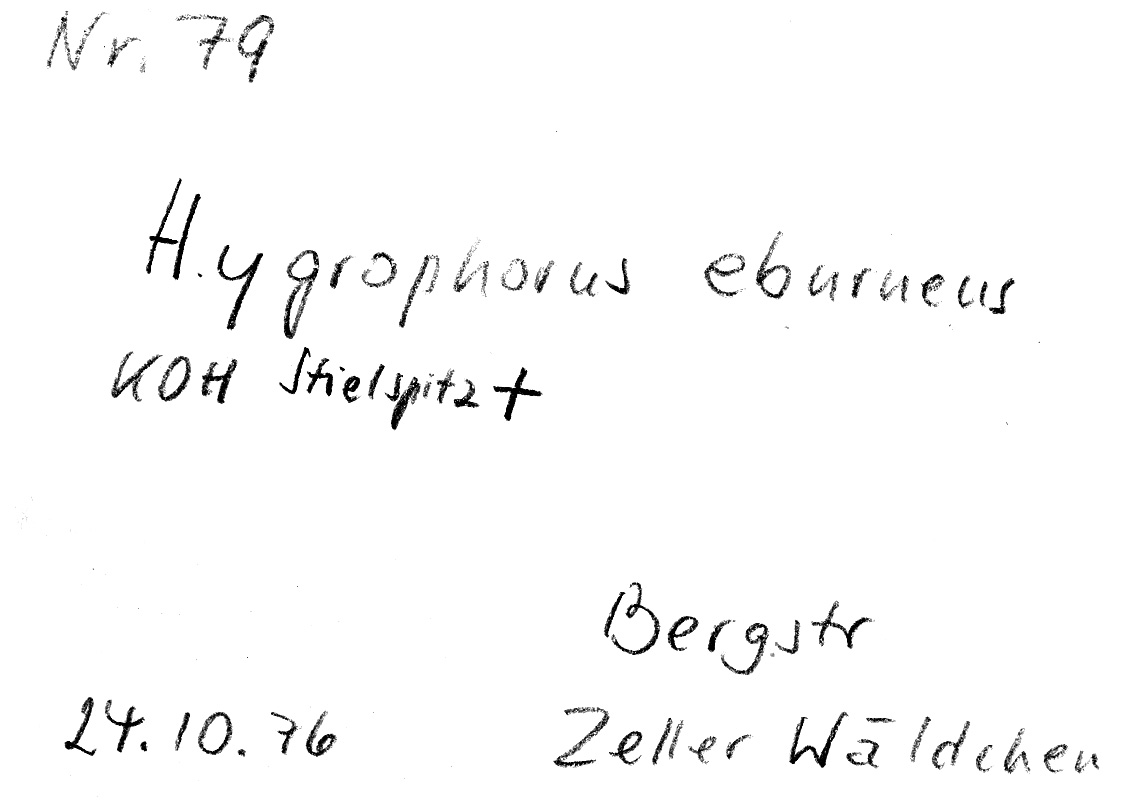 Nr. 79
H.ygrophorus eburneus
KOH Stielspitz +
Bergstr
24.10.76 Zeller Wäldchen